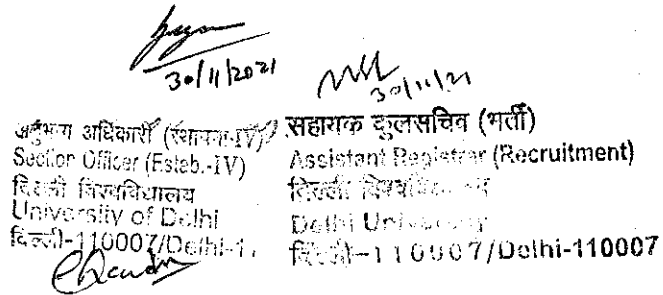 30/11/2021
30/11/21
अनुभाग अधिकारी (स्थापना-IV)
Section Officer (Estab.-IV)
दिल्ली विश्वविद्यालय
University of Delhi
दिल्ली-110007/Delhi-11
सहायक कुलसचिव (भर्ती)
Assistant Registrar (Recruitment)
दिल्ली विश्वविद्यालय
Delhi University
दिल्ली-110007/Delhi-110007